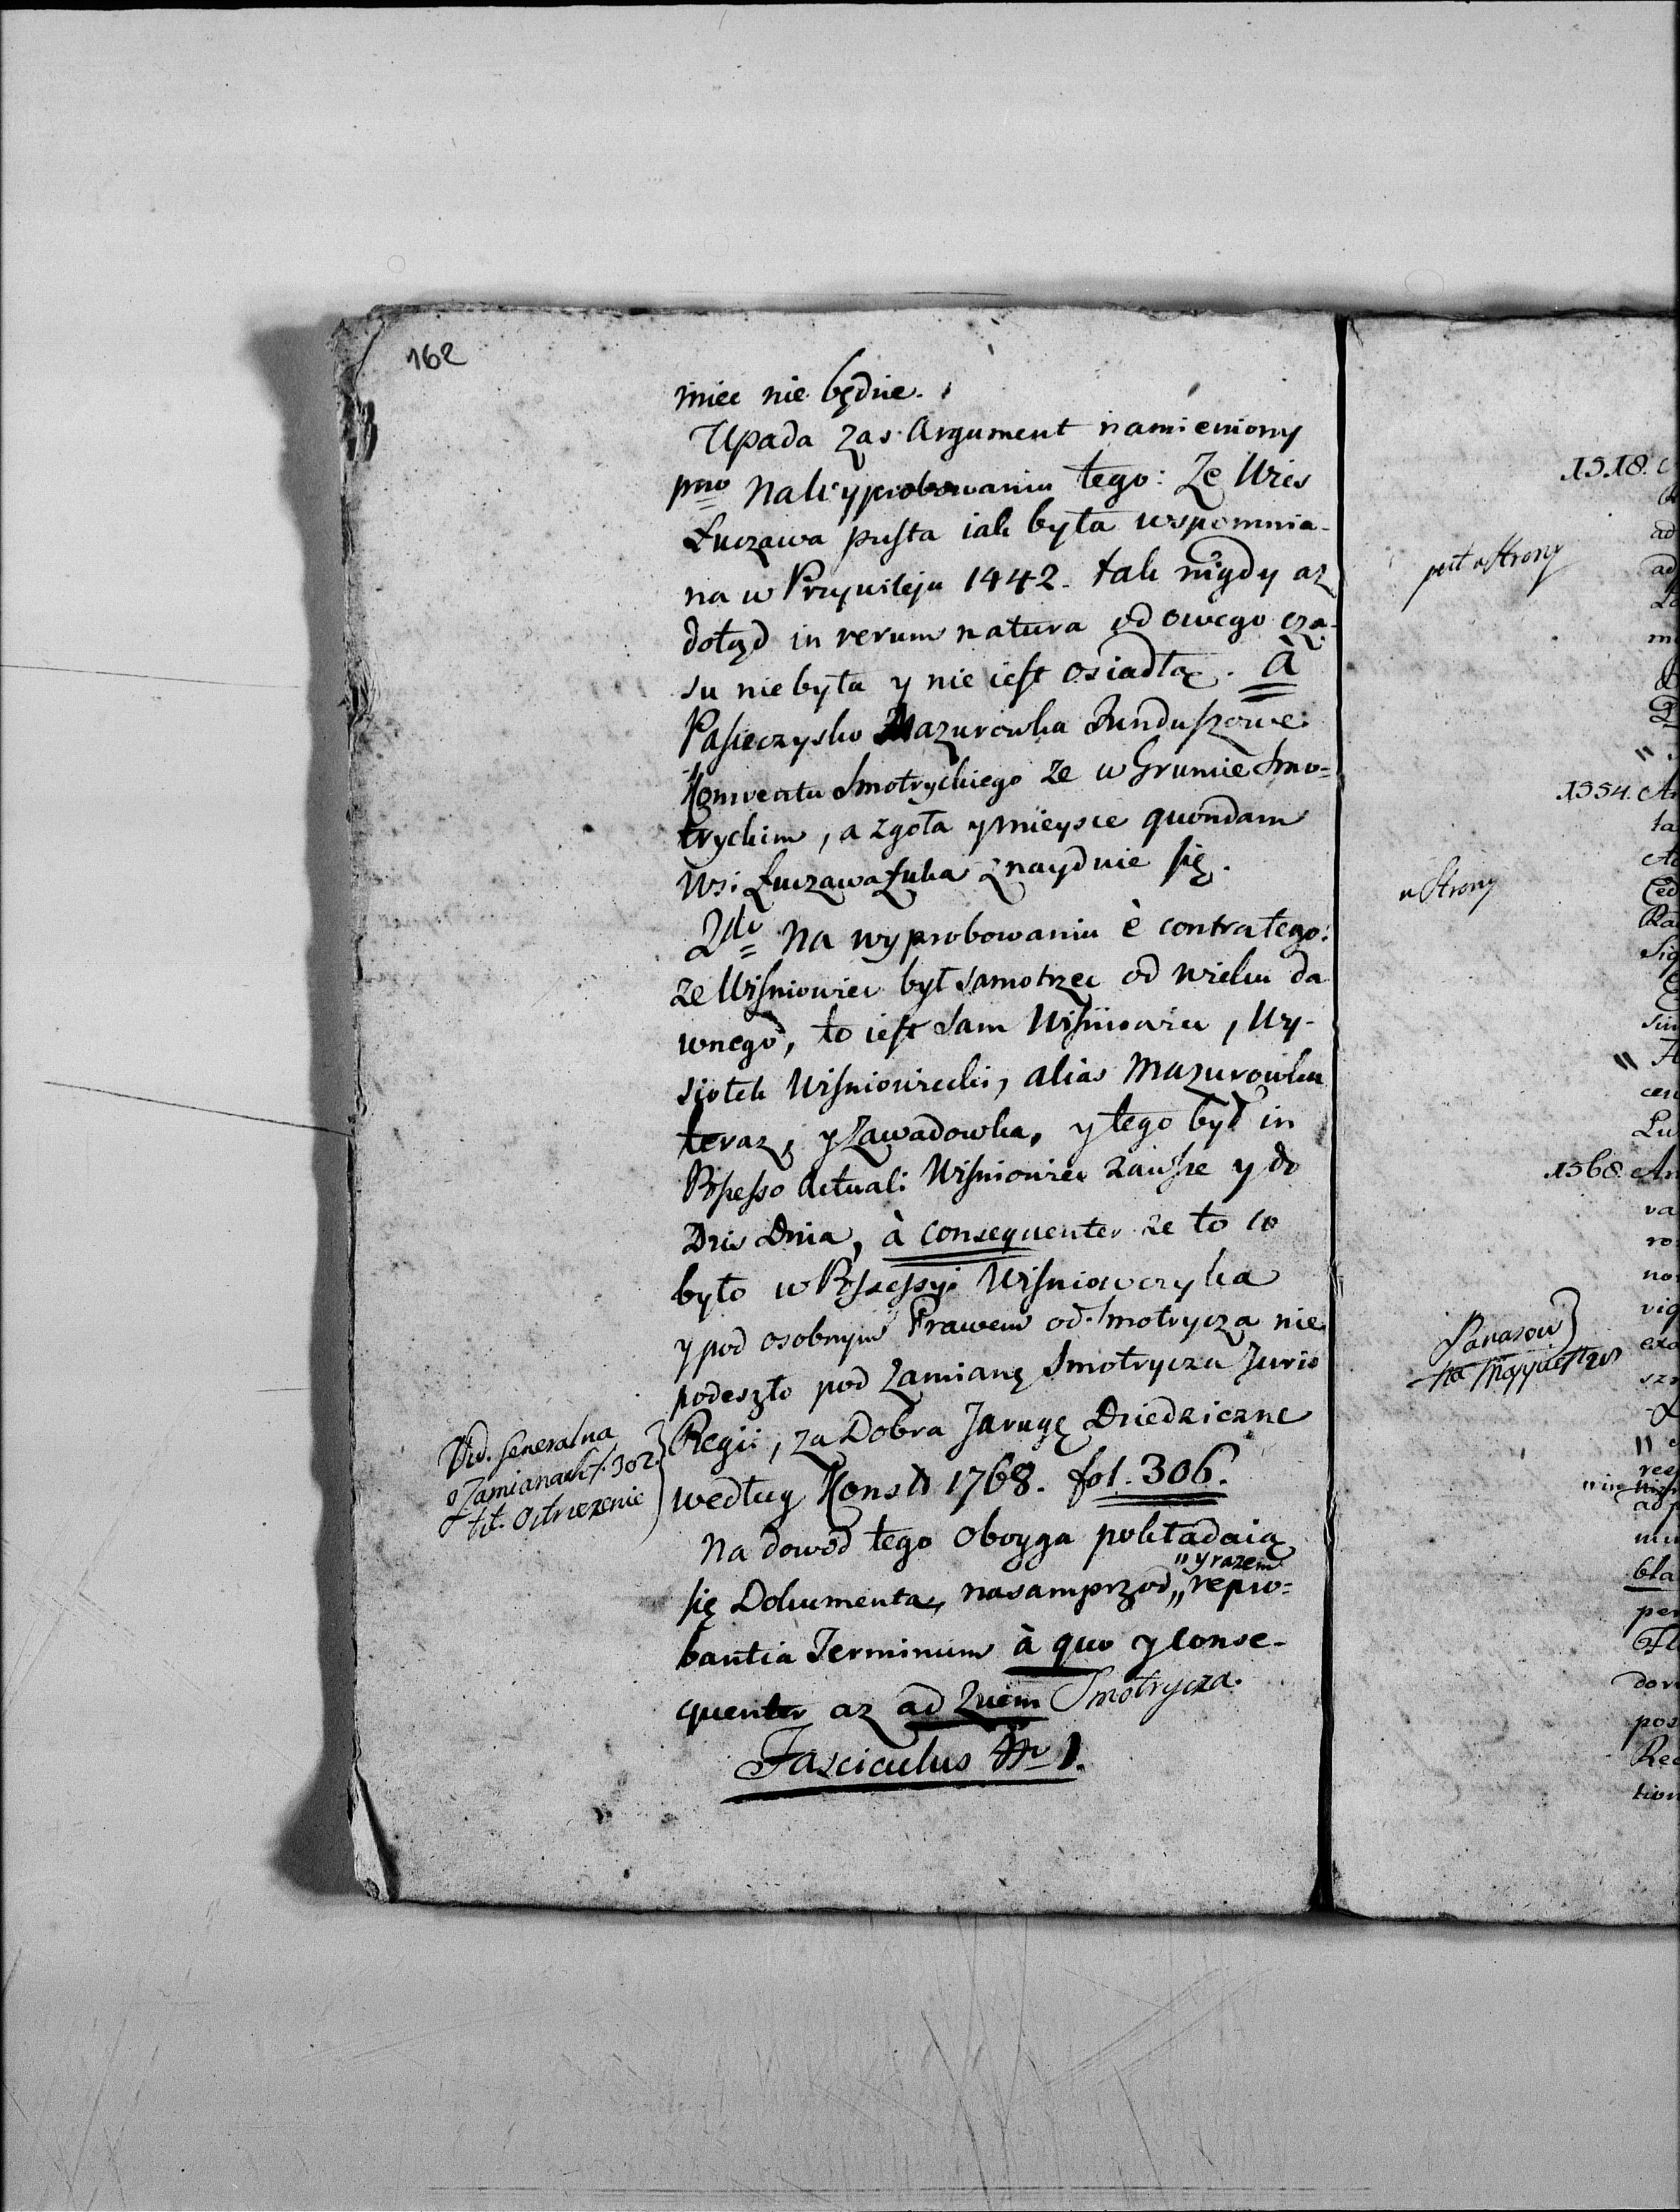 162
miec nie będzie.
Upada zas Argument namieniony
pmo Na wyprobowaniu tego: Ze Wies
Łuczawa pusta iak była wspomnia-
na w Przywileju 1442. tak nigdy az
dotąd in rerum natura od owego cza-
su nie była y nie iest osiadłą. A
Pasieczysko Mazurowka Funduszowe
Konwentu Smotryckiego ze w Gruncie Smo=
tryckim, a zgoła y mieysce quondam
Wsi Łuczawa Łuka znayduie się.
2do Na wyprobowaniu è contra tego:
ze Wiśniowiec był samotrzec od wielu da
wnego, to iest sam Wiśniowiec, Wy-
siołek Wiśniowiecki, alias Mazurowka
teraz, y Zawadowka, y tego był in
Possesso Actuali Wiśniowiec zawsze y do
Dzis Dnia, à consequenter ze to co
było w Possessyi Wiśniowczyka
y pod osobnym Prawem od Smotrycza nie
podeszło pod Zamianę Smotrycza Juris
Regii, za Dobra Jarugę Dziedziczne
według Konstt 1768. fol. 306.
Vid. Generalna
o Zamianach f. 302
tit. Ostrzeżenie
Na dowod tego oboyga pokładaią
się Dokumenta, nasamprzod „ repro=
„ y razem
bantia Terminum à quo y conse-
quenter az ad Quem Smotrycza.
Fasciculus Nr 1.
1518.
ad
ad
u Strony
1554. An
u Strony
1568. An
va
ro
no
vig
Panasow
bla
per
dor
pos
Rec
tion